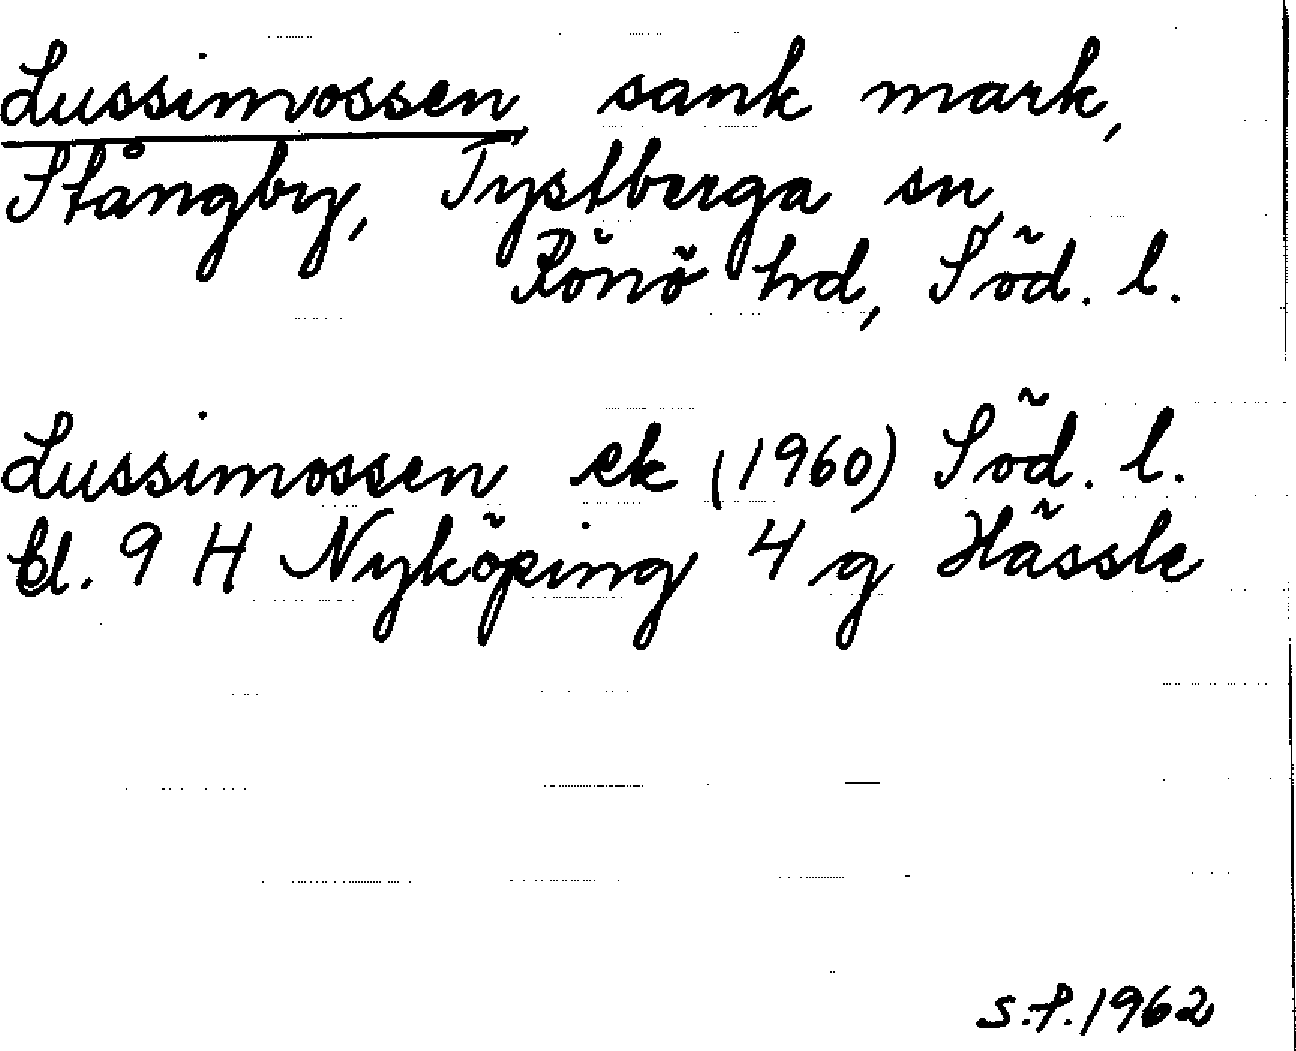 Lussimossen, sank mark,
Stångby, Tystberga sn,
Rönö hd, Söd. l.
Lussimossen ek (1960) Söd. l.
bl. 9 H Nyköping 4 g Hässle
S.F. 1962